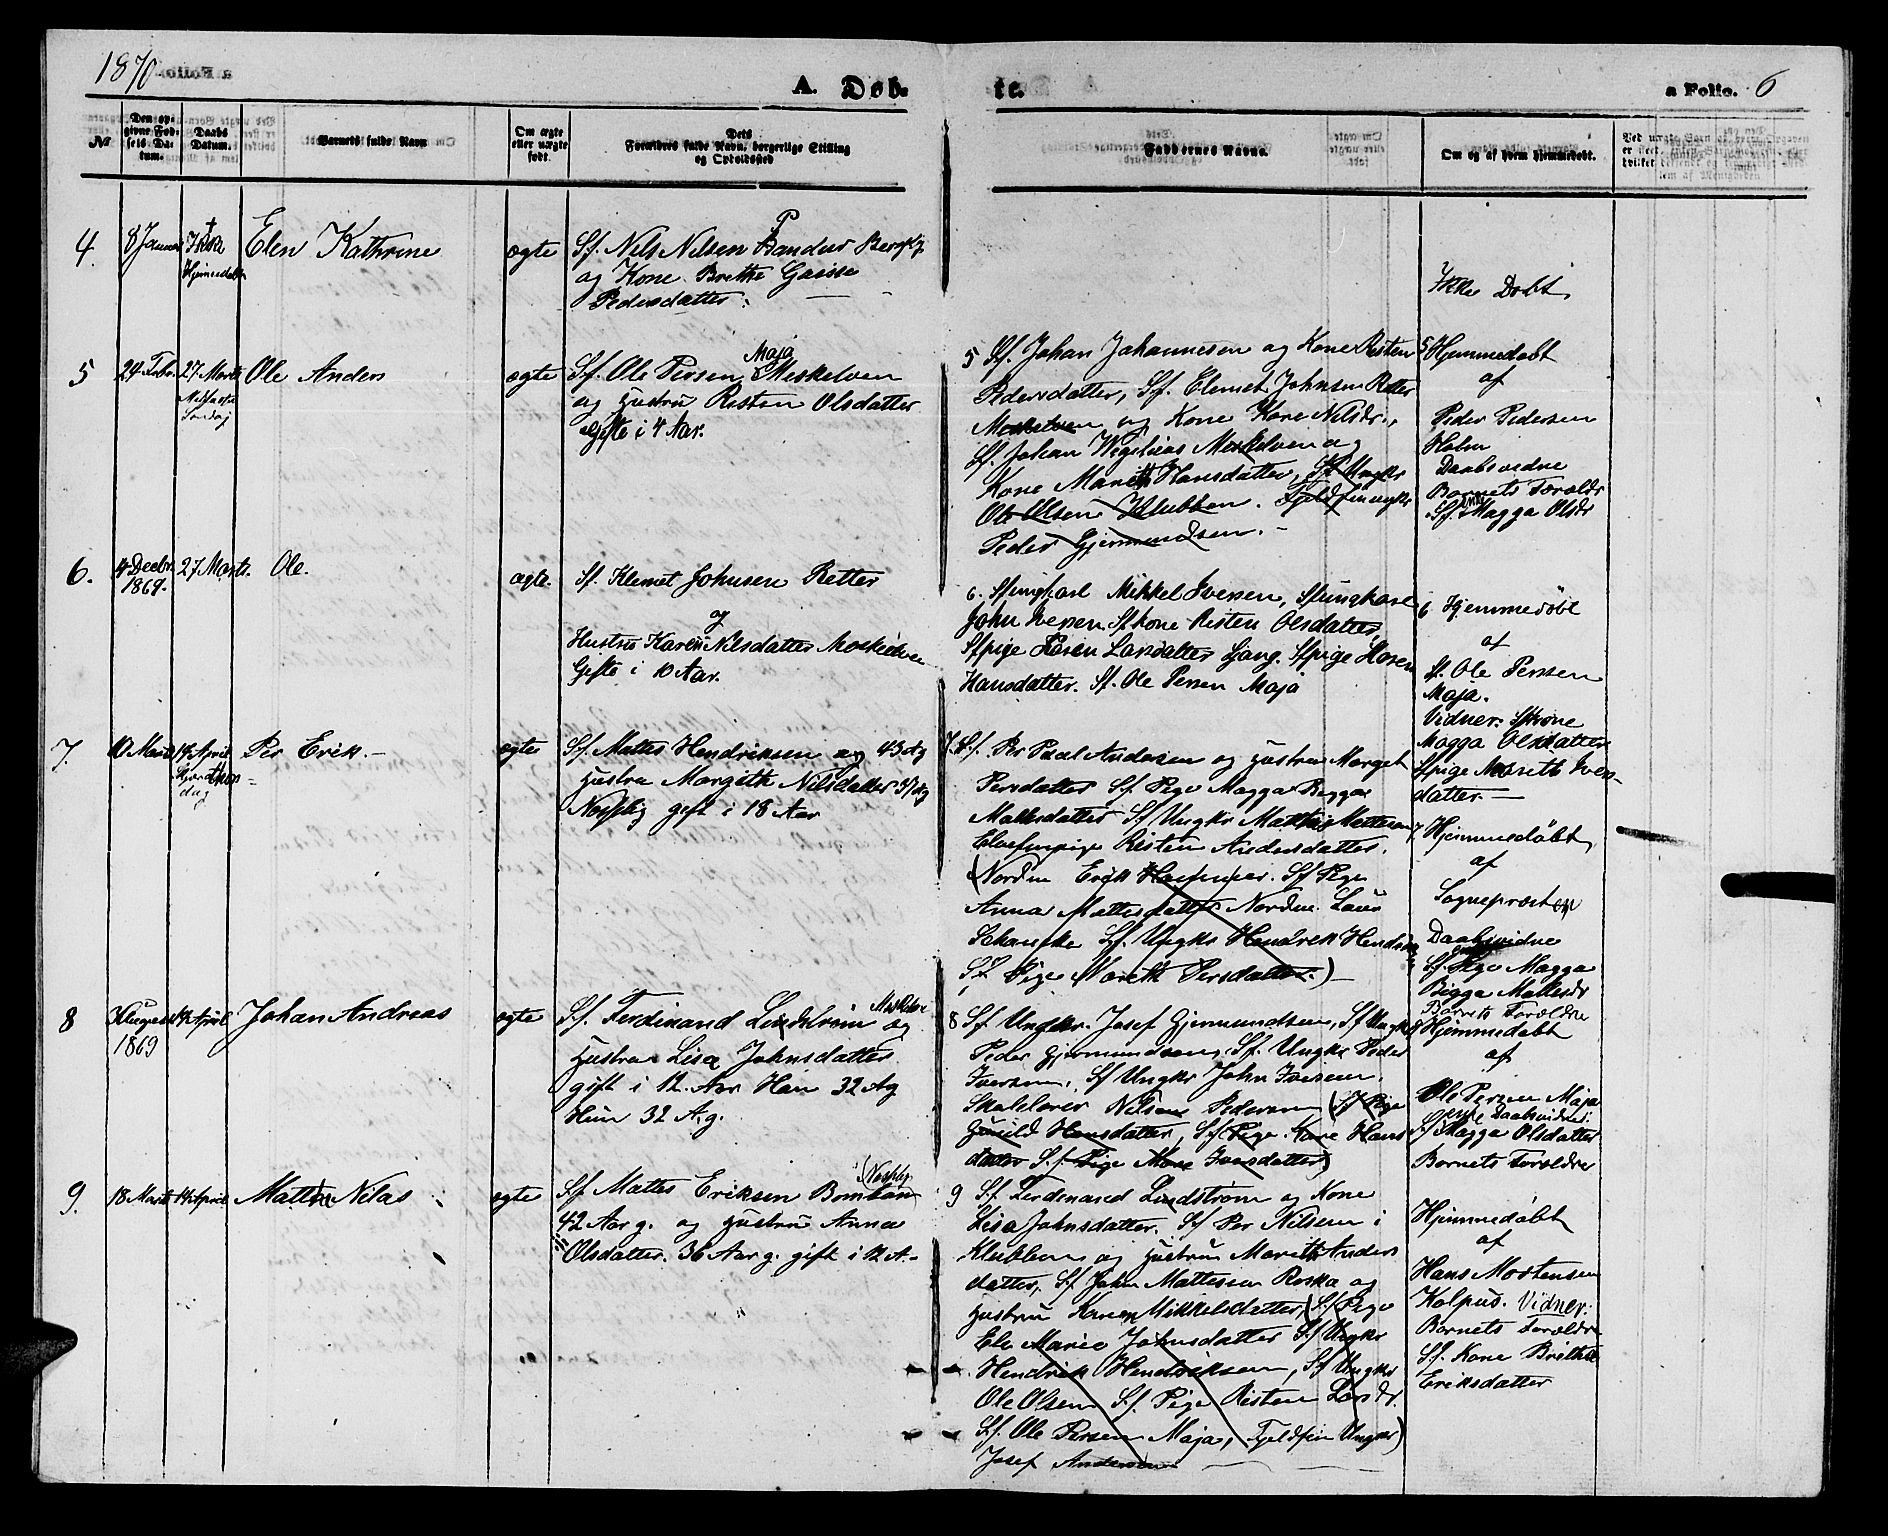 1870
A. Døb-
te.
a Folio. 6
No
Den op-
givne Fød-
sels Da-
tum.
Daabs
Datum.
Barnets fulde Navn
Om ægte
eller uægte
født.
Dets
Forældres fulde Navn, borgerlige Stilling
og Opholdssted
Faddernes Navne.
Om og af hvem hjemmedøbt.
4.
8 Januar
Ikke
Hjemmedøbt
Elen Kathrine
ægte
Sf. Nils Nilsen Bander
og Kone Brethe Gaisse
Pedersdatter.
Ikke Døbt
5
24 Febr.
27 Marts
Søndag
Ole Anders
ægte
Sf. Ole Persen Maja Meskelven
og Hustru Risten Olsdatter
Gifte i 4 Aar.
5 Sf. Johan Johannesen og Kone Risten
Pedersdatter, Sf. Clemet Johnsen Retter
Meskelven og Kone Kare Nilsdr.,
Sf. Johan Wegelius Meskelven og
Kone Marith Hansdatter, Sf. Ungkr
Ole Olsen Klubben. Fjeldfin ungkr
Peder Gjermundsen.
5 Hjemmedøbt
af
Peder Pedersen
Holm
Daabsvidne
Barnets Forældr
Sf. Enke Magga Olsdr
6.
4 Decbr.
1869.
27 Marts.
Ole.
ægte.
Sf. Klemet Johnsen Retter
og
Hustru Karen Nilsdatter Meskelven
Gifte i 10 Aar.
6. Sfungkarl Mikkel Iversen, Sfungkarl
John Iversen. Sfkone Risten Olsdatter,
Sfpige Karen Larsdatter Gang. Sfpige Karen
Hansdatter. Sf. Ole Persen Maja
6 Hjemmedøbt
af
Sf. Ole Persen
Maja.
Vidner: Sfkone
Magga Olsdatter
Sfpige Mareth Iver-
datter.
7.
10 Marts
14 April
Skjærthors-
dag
Per Erik.
ægte
Sf. Mattes Hendriksen og 43 Ag
Hustru Margith Nilsdatter 37 Ag
Nesseby gift i 18 Aar
7. Sf. Per Paal Andersen og Hustru Marget
Persdatter Sf. Pige Magga Bigga
Mattesdatter Sf Ungkr Mathis Mattesen
Elvefinpige Risten Andersdatter.
(Nordm Erik Sf Pige
Anna Mattesdatter Nordm. Laur
Schanche Sf. Ungkr Hendrek Hendrik
Sf. Pige Mareth Persdatter.)
7 Hjemmedøbt
af
Sognepræsten
Daabsvidne
Sf. Pige Magga
Bigga Mattesdr
Barnets Forældre
8
1869
14 April
Johan Andreas
ægte
Sf. Ferdinand Lindstrøm Meskelv og
Hustru Lisa Johnsdatter
gift i 12. Aar Han 32 Ag
Hun 32 A.g.
8 Sf Ungkr. Josef Gjermundsen, Sf Ungkr
Peder Gjermundsen, Sf. Ungkr Peder
Iversen, Sf Ungkr John Iversen.
Skolelærer Nilsen Pedersen (Sf Pige
Gunild Hansdatter, Sf Pige Kare Hans
datter Sf. Pige Mare Iversdatter)
8 Hjemmedøbt
af
Ole Persen Maja
Daabsvidne:
Sf Magga Olsdatter
Barnets Forældre
9.
18 Marts
14 April
Mathis Nilas
ægte
Sf Mattes Eriksen Bomban (Nesseby)
42 Aar g. og Hustru Anna
Olsdatter. 36 Aar g. gift i 12 A.
9 Sf. Ferdinand Lindstrøm og Kone
Lisa Johnsdatter. Sf Per Nilsen i
Klubben og Hustru Marith Anders
datter, Sf. John Mattesen Roska og
Hustru Karen Mikkelsdatter (Sf. Pige
Ele Marie Johnsdatter Sf Ungkr
Hendrik Hendreksen, Sf Ungkr
Ole Olsen Sf. Pige Risten Larsdr.
Sf. Ole Persen Maja, Fjeldfin Ungkr)
Josef Andersen
Hjemmedøbt
af
Hans Mortensen
Kolpus. Vidner:
Barnets Forældre
Sf. Kone Brithe
Eriksdatter